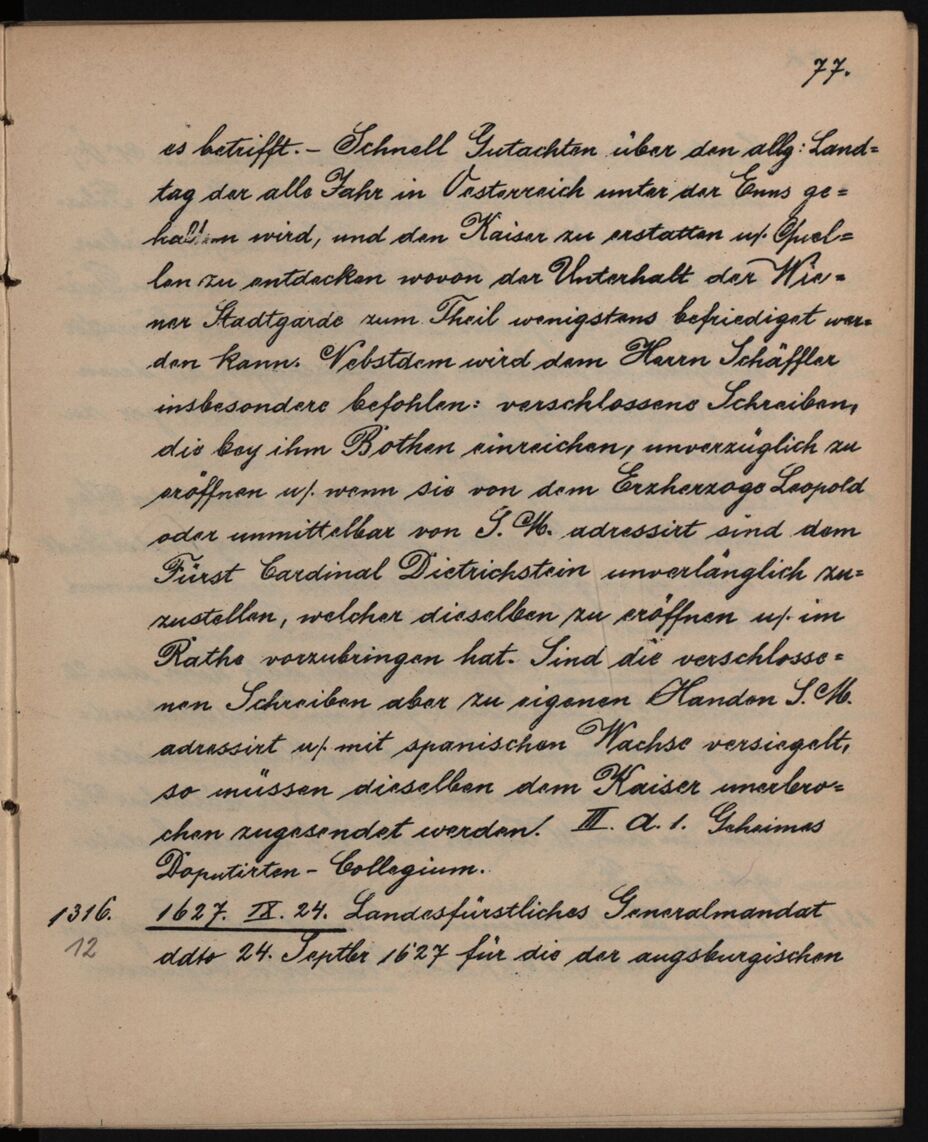 77.
es betrifft. – Schnell Gutachten über den allg: Land=
tag der alle Jahr in Oesterreich unter der Enns ge=
halten wird, und den Kaiser zu erstatten u/. Quel=
len zu entdecken wovon der Unterhalt der Wie=
ner Stadtgarde zum Theil wenigstens befriediget wer=
den kann. Nebstdem wird dem Herrn Schäffler
insbesondere befohlen: verschlossene Schreiben,
die bey ihm Bothen einreichen, unverzüglich zu
eröffnen u/. wenn sie von dem Erzherzoge Leopold
oder unmittelbar von S. M. adressirt sind dem
Fürst Cardinal Dietrichstein unverlänglich zu=
zustellen, welcher dieselben zu eröffnen u/. im
Rathe vorzubringen hat. Sind die verschlosse=
nen Schreiben aber zu eigenen Handen S. M.
adressirt u/. mit spanischen Wachse versiegelt,
so müssen dieselben dem Kaiser unerbro=
chen zugesendet werden. III. A. 1. Geheimes
Deputirten – Collegium.
1316. 1627. IX. 24. Landesfürstliches Generalmandat
12 ddto 24. Septbr 1627 für die der augsburgischen